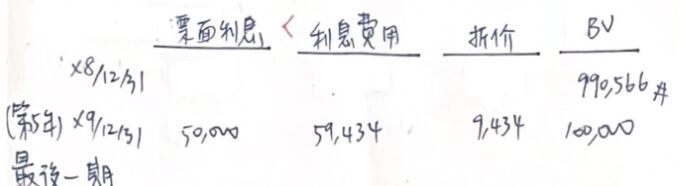 票面利息 < 利息費用 折价 BV
X8/12/31 990,566#
(第5年) X9/12/31 50,000 59,434 9,434 100,000
最後一期